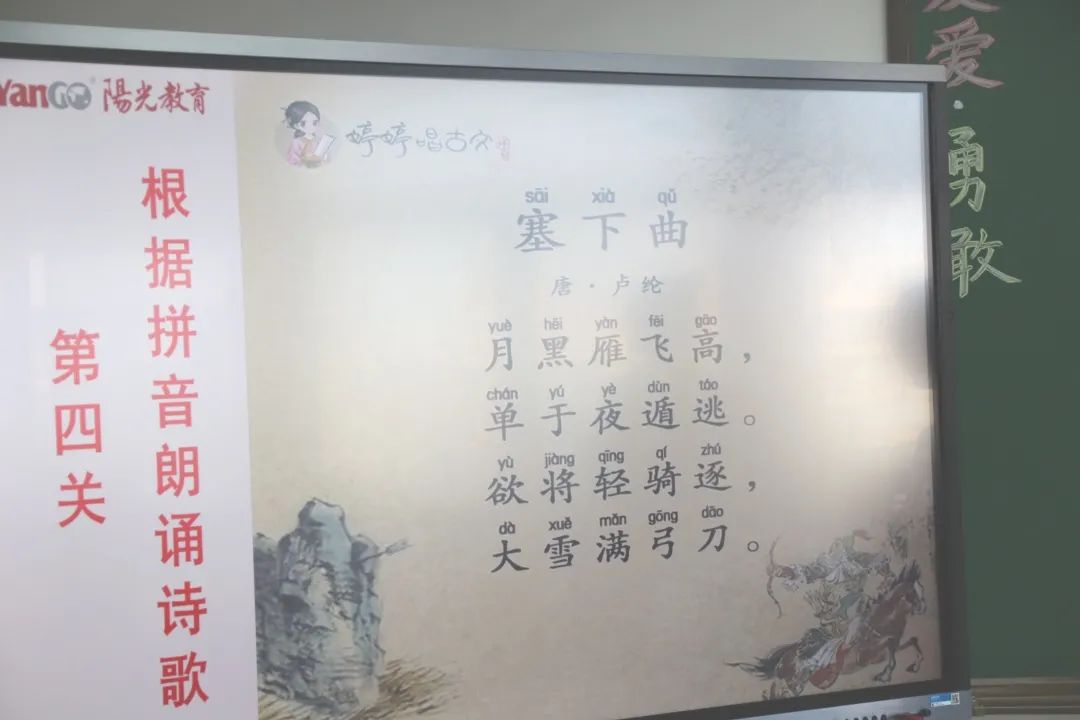 YanGO 陽光教育
第四关
根据拼音朗诵诗歌
婷婷唱古文
sāi xià qǔ
塞下曲
唐·卢纶
yuè hēi yàn fēi gāo
月黑雁飞高，
chán yú yè dùn táo
单于夜遁逃。
yù jiàng qīng qí zhú
欲将轻骑逐，
dà xuě mǎn gōng dāo
大雪满弓刀。
爱·勇敢